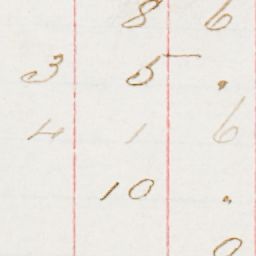 8 6
3 5 .
4 1 6
10 .